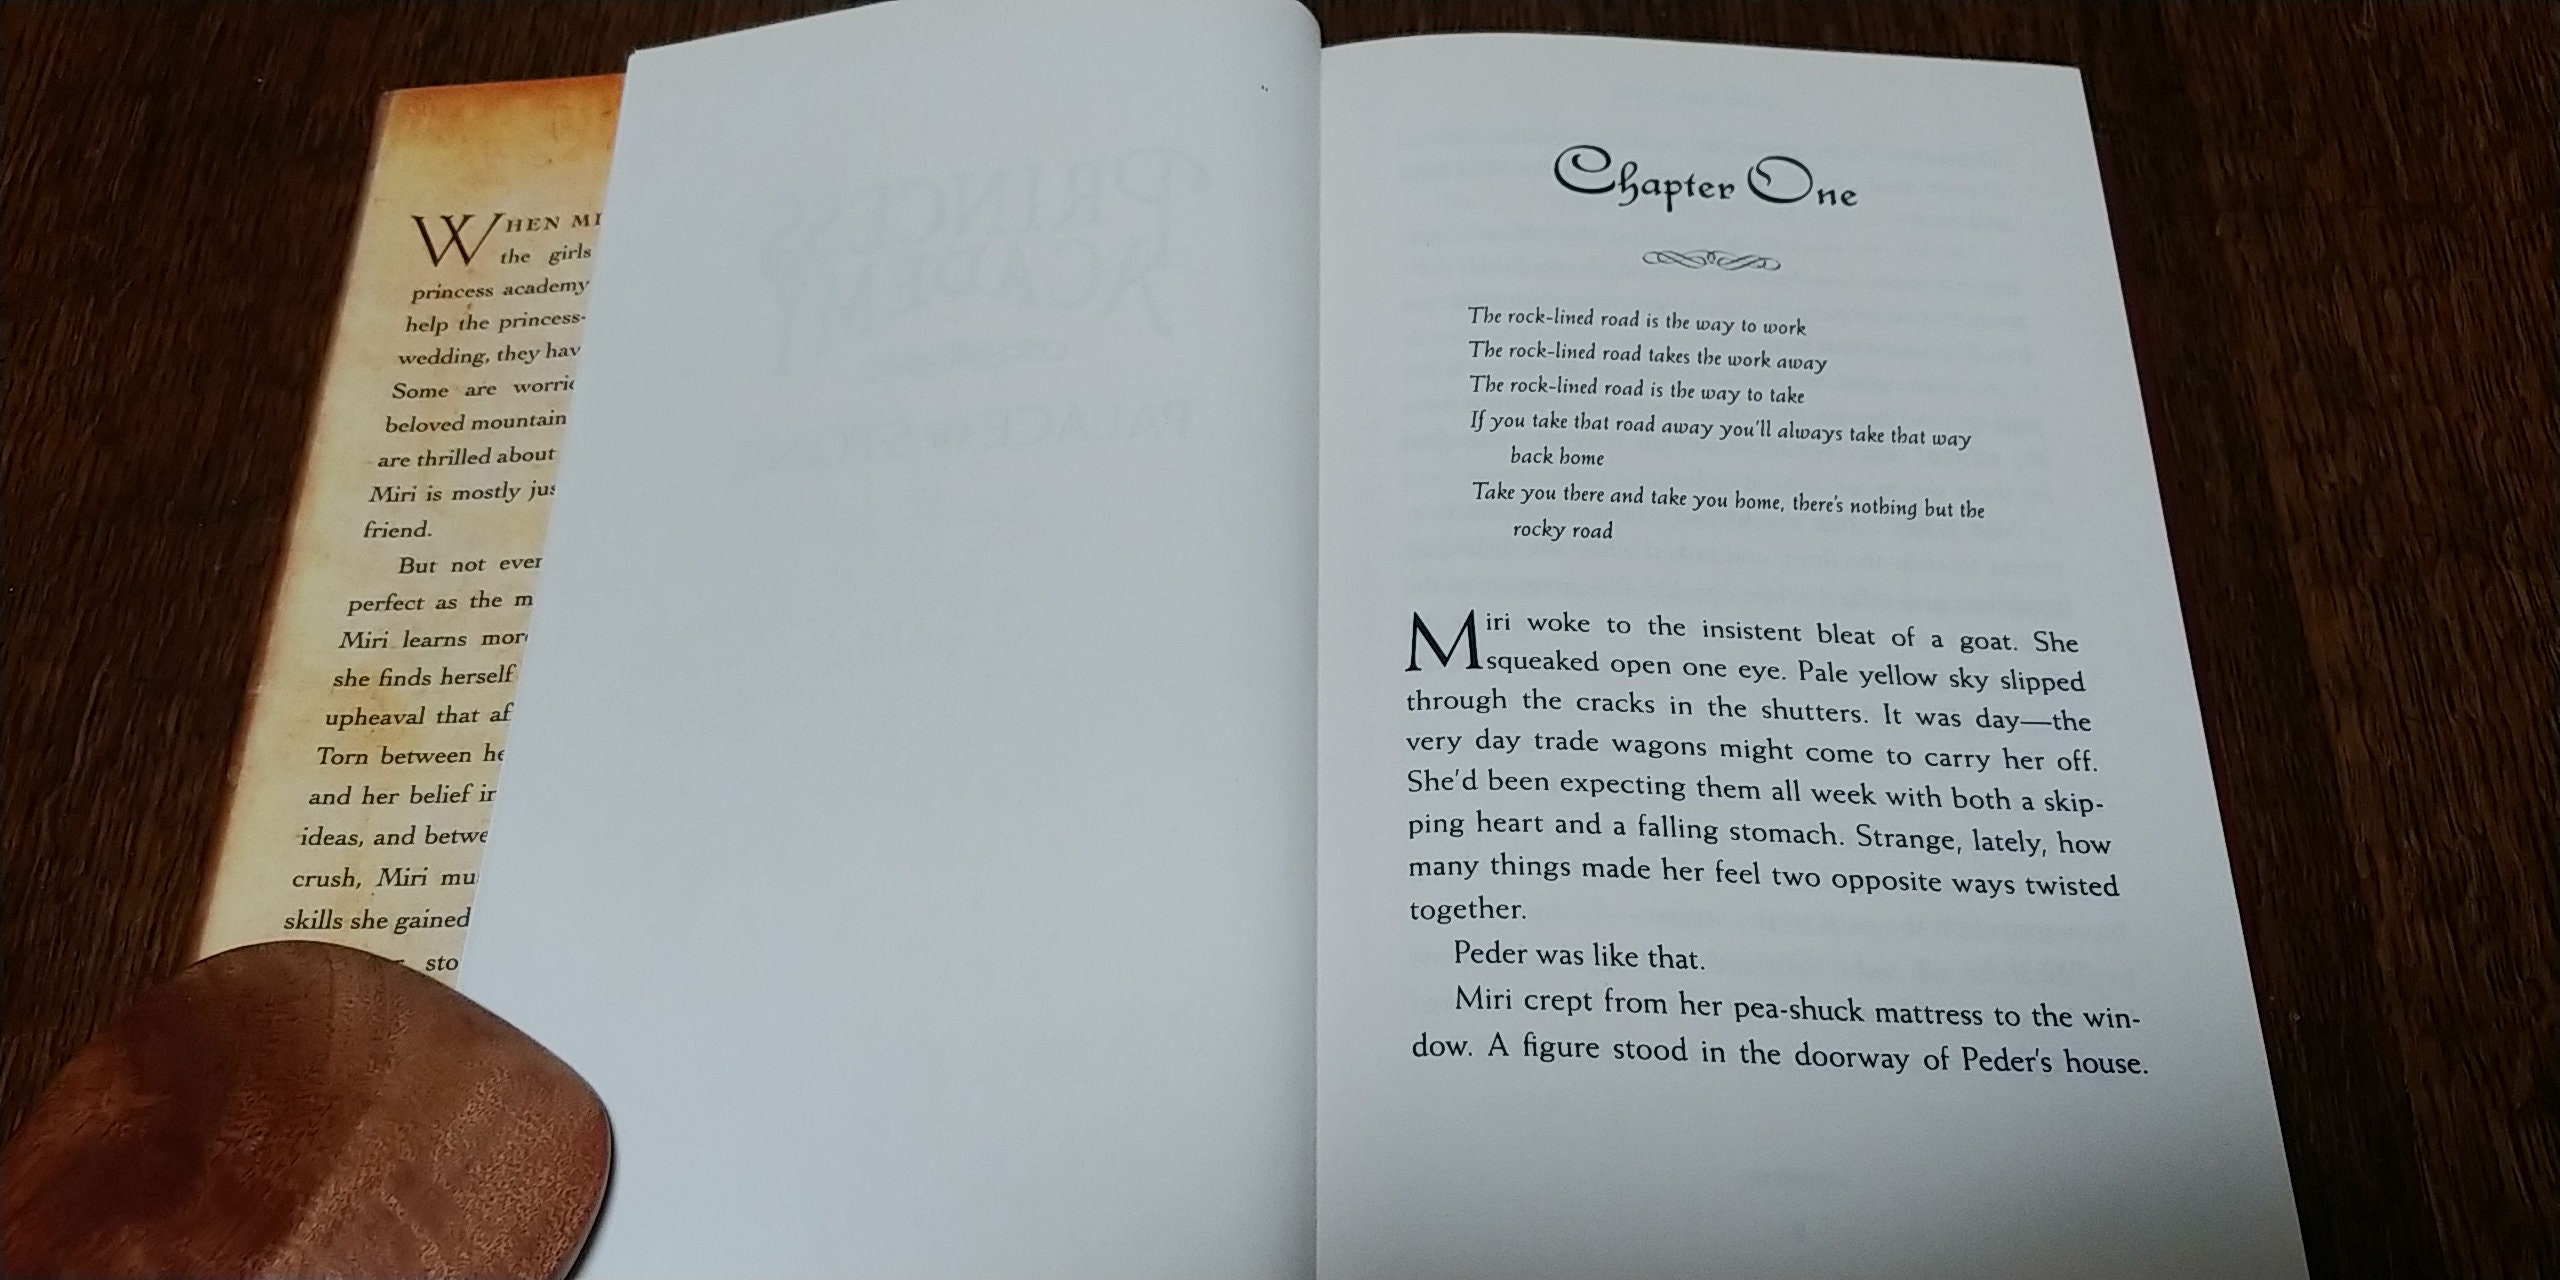 WHEN
the girls
princess academy
help the princess-
wedding, they
Some are
beloved mountain
are thrilled about
Miri is mostly
friend.
But not
perfect as the
Miri learns
she finds herself
upheaval that
Torn between
and her belief
ideas, and
crush, Miri
skills she gained
Chapter One
The rock-lined road is the way to work
The rock-lined road takes the work away
The rock-lined road is the way to take
If you take that road away you'll always take that way
back home
Take you there and take you home, there's nothing but the
rocky road
Miri woke to the insistent bleat of a goat. She
squeaked open one eye. Pale yellow sky slipped
through the cracks in the shutters. It was day—the
very day trade wagons might come to carry her off.
She'd been expecting them all week with both a skip-
ping heart and a falling stomach. Strange, lately, how
many things made her feel two opposite ways twisted
together.
Peder was like that.
Miri crept from her pea-shuck mattress to the win-
dow. A figure stood in the doorway of Peder's house.